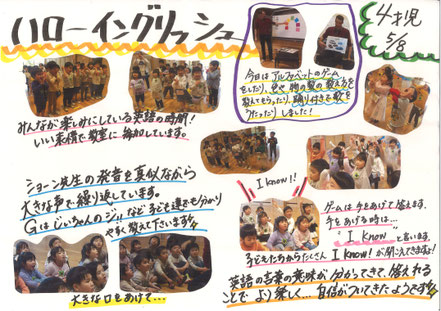 ハローイングリッシュ
4才児
5/8
今日は アルファベットのゲーム
をしたり、色や物の数の数え方を
教えてもらったり、踊り付きで歌を
うたったりしました!
みんなが楽しみにしている英語の時間!
いい表情で教室に参加しています。
ショーン先生の発音を真似ながら
大きな声で繰り返しています。
Gはじいちゃんのジリなど子ども達も分かり
やすく教えて下さいます!!
I know!!
ゲームは手をあげて答えます。
手をあげる時は…
"I know"と言います。
子どもたちからたくさん I know!が聞こえてきますよ!
大きな口をあけて…
英語の言葉の意味が分かってきて、答えれる
ことで より楽しく… 自信がついてきたようです!!